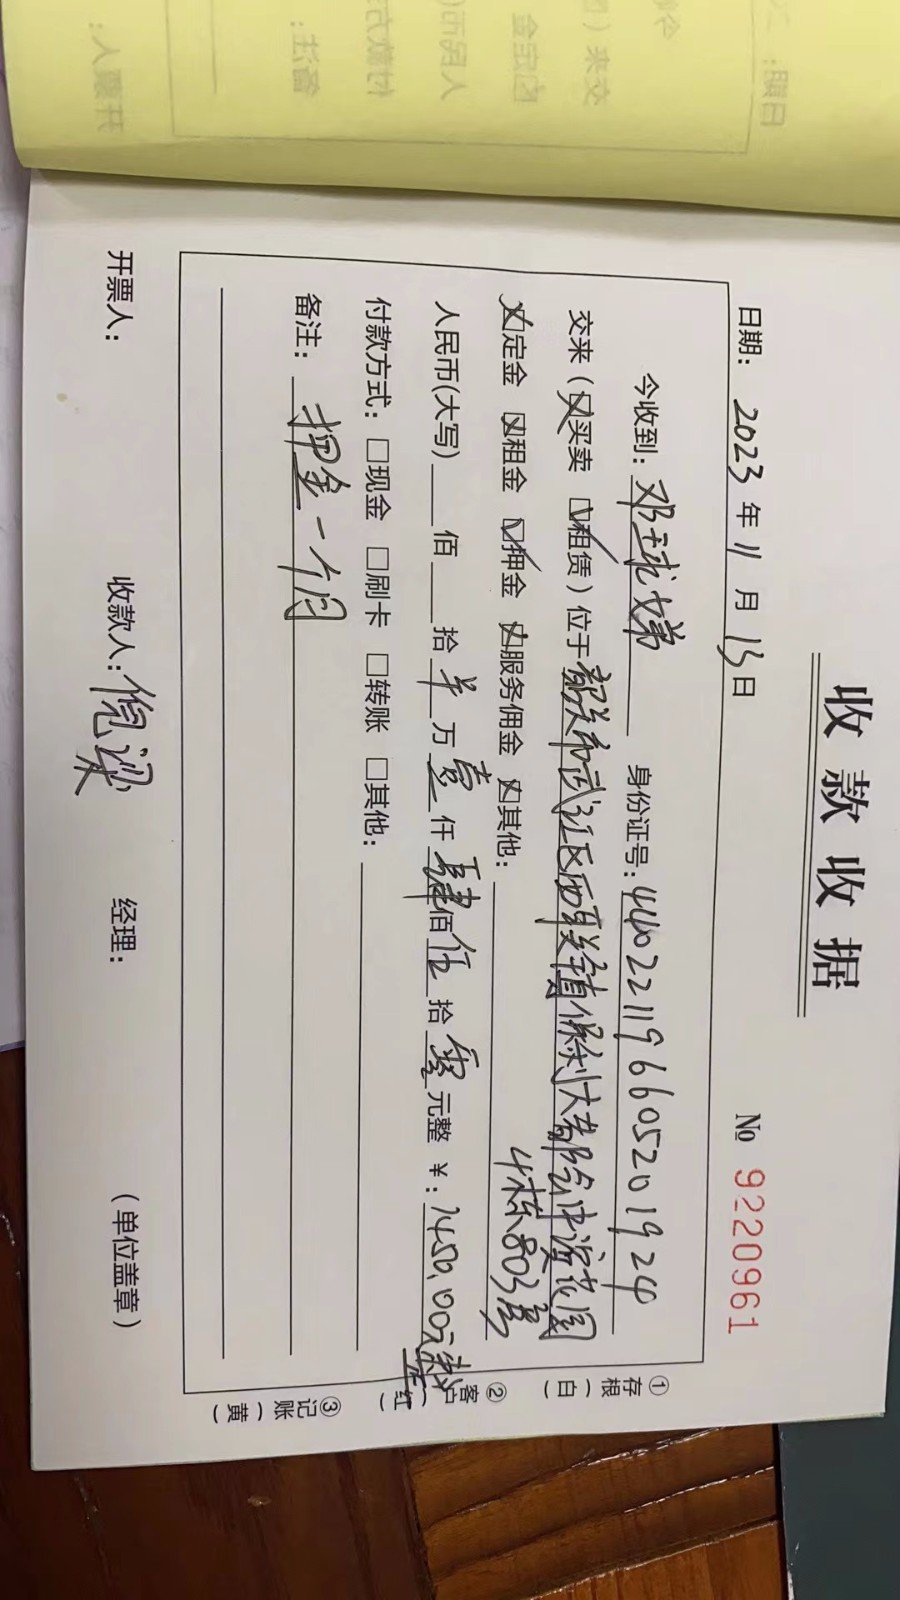 收款收据
№ 9220961
日期: 2023 年 11 月 13 日
今收到: 邓球娣 身份证号: 440221196605201924
交来 ( ☒买卖 ☑租赁 ) 位于 韶关市武江区西联镇保利大都会中 花园
4栋803房
☒定金 ☒租金 ☑押金 ☒服务佣金 ☒其他:
人民币(大写) 佰 拾 ¥ 万 壹 仟 肆 佰 伍 拾 零 元整 ¥: 1450.00元整
付款方式: □现金 □刷卡 □转账 □其他:
备注: 押金一个月
开票人: 收款人: 倪梁 经理: (单位盖章)
①存根(白) ②客户(红) ③记账(黄)